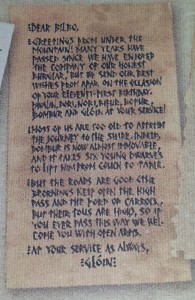 DEAR BILBO,
GREETINGS FROM UNDER THE
MOUNTAIN! MANY YEARS HAVE
PASSED SINCE WE HAVE ENJOYED
THE COMPANY OF OUR HONEST
BURGLAR, BUT WE SEND OUR BEST
WISHES FROM AFAR ON THE OCCASION
OF YOUR ELEVENTY-FIRST BIRTHDAY.
DWALIN, DORI, NORI, BIFUR, BOFUR,
BOMBUR AND GLÓIN AT YOUR SERVICE!
MOST OF US ARE TOO OLD TO ATTEMPT
THE JOURNEY TO THE SHIRE. INDEED,
BOMBUR IS NOW ALMOST IMMOVABLE,
AND IT TAKES SIX YOUNG DWARVES
TO LIFT HIM FROM COUCH TO TABLE.
BUT THE ROADS ARE GOOD (THE
BEORNINGS KEEP OPEN THE HIGH
PASS AND THE FORD OF CARROCK,
BUT THEIR TOLLS ARE HIGH), SO IF
YOU EVER PASS THIS WAY WE WEL-
COME YOU WITH OPEN ARMS.
AT YOUR SERVICE AS ALWAYS,
GLÓIN